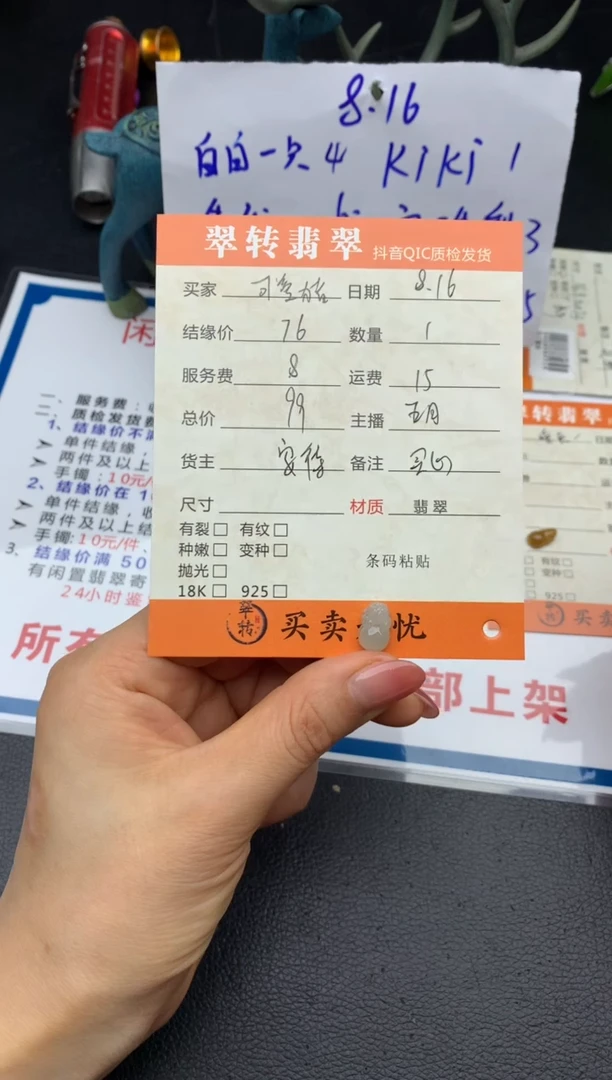 8.16
白白一点 4 KiKi 1
3
5
翠转翡翠 抖音QIC质检发货
买家 日期 8.16
结缘价 76 数量 1
服务费 8 运费 15
总价 99 主播 五月
货主 备注
尺寸 材质 翡翠
有裂□ 有纹□
种嫩□ 变种□
抛光□
18K□ 925□
条码粘贴
翠转 买卖 忧
闲
一、服务费:
二、质检发货费
1、结缘价不满
➤ 单件结缘,
➤ 两件及以上
手镯:10元/
2、结缘价在 1
➤ 单件结缘,收
➤ 两件及以上结
手镯:10元/件、
3、结缘价满 50
有闲置翡翠寄
24小时鉴
所有
部上架
转翡翠
有纹□
变种□
925□
买卖